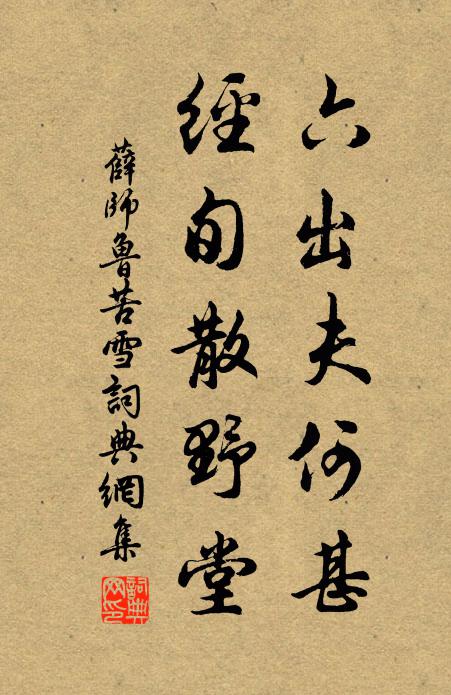 六出夫何甚
經旬散野堂
薛師魯苦雪詞典網集
詞典网印